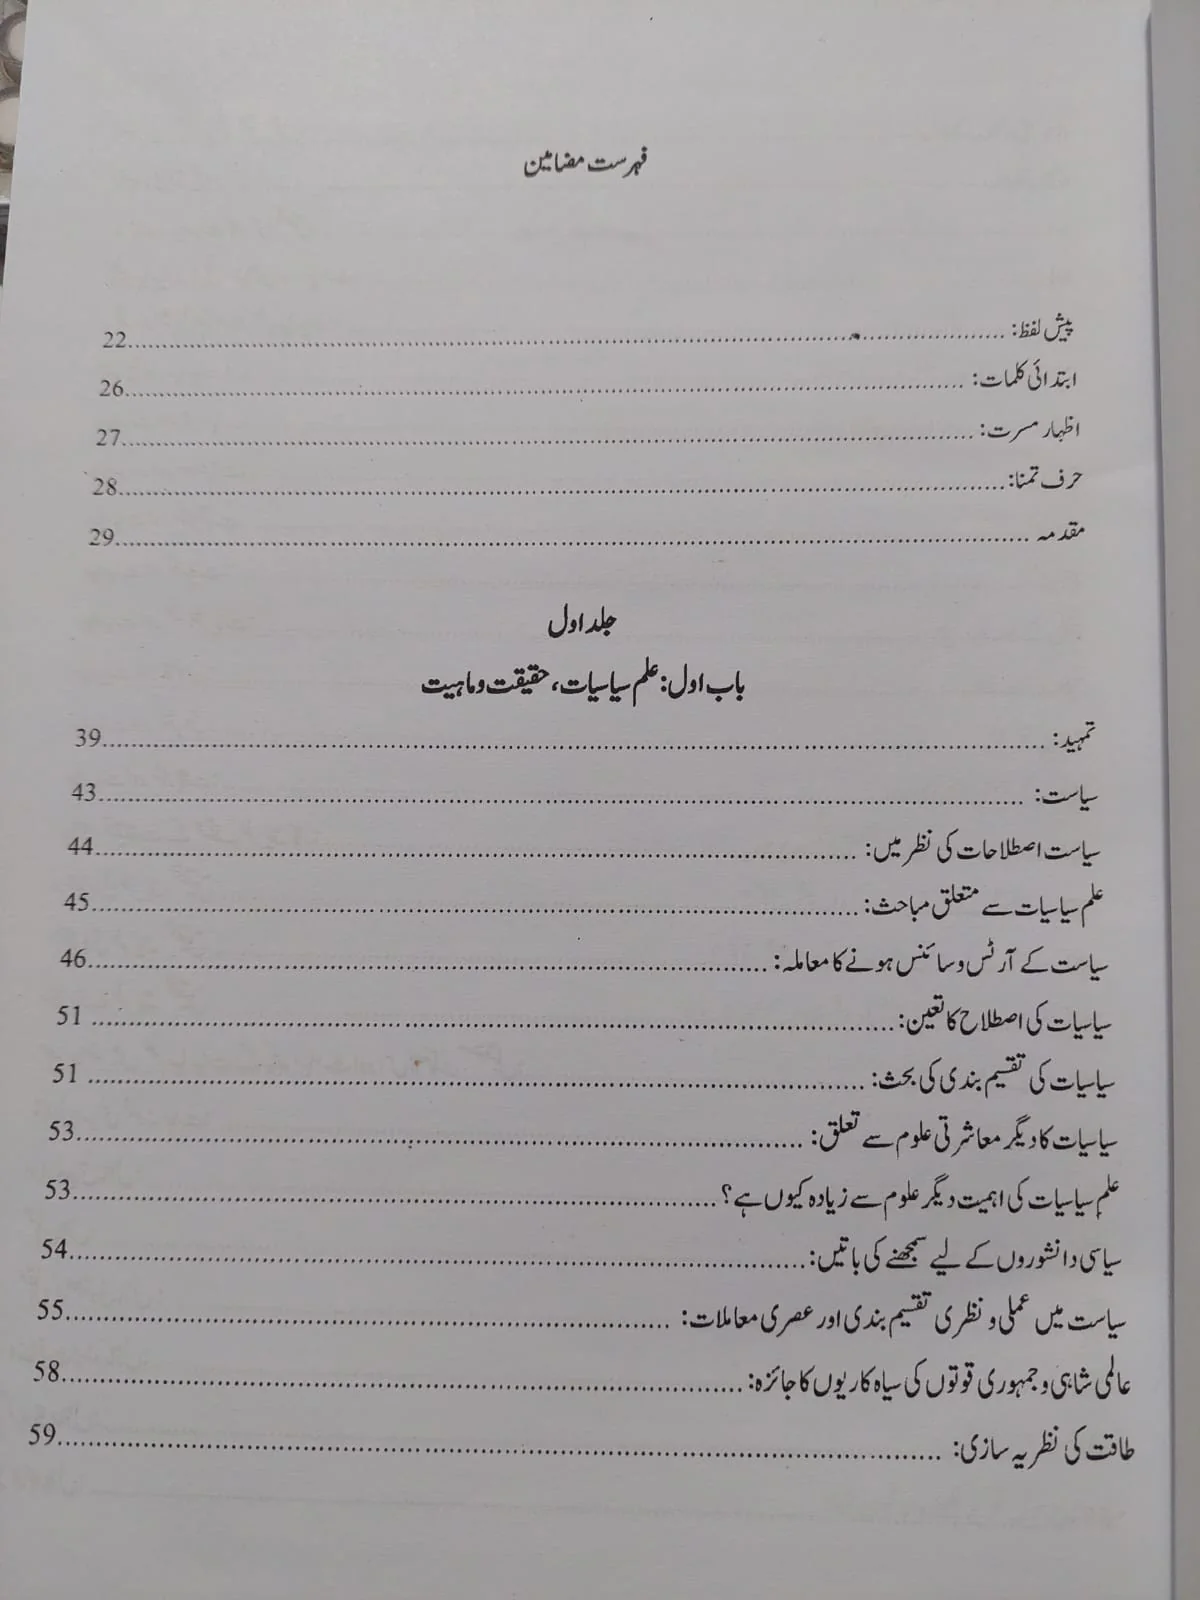 فہرست مضامین
پیش لفظ:........................22
ابتدائی کلمات:........................26
اظہار مسرت:........................27
حرف تمنا:........................28
مقدمہ........................29
جلد اول
باب اول: علم سیاسیات، حقیقت و ماہیت
تمہید:........................39
سیاست:........................43
سیاست اصطلاحات کی نظر میں:........................44
علم سیاسیات سے متعلق مباحث:........................45
سیاست کے آرٹس و سائنس ہونے کا معاملہ:........................46
سیاسیات کی اصطلاح کا تعین:........................51
سیاسیات کی تقسیم بندی کی بحث:........................51
سیاسیات کا دیگر معاشرتی علوم سے تعلق:........................53
علمِ سیاسیات کی اہمیت دیگر علوم سے زیادہ کیوں ہے؟........................53
سیاسی دانشوروں کے لیے سمجھنے کی باتیں:........................54
سیاست میں عملی و نظری تقسیم بندی اور عصری معاملات:........................55
عالمی شاہی و جمہوری قوتوں کی سیاہ کاریوں کا جائزہ:........................58
طاقت کی نظریہ سازی:........................59